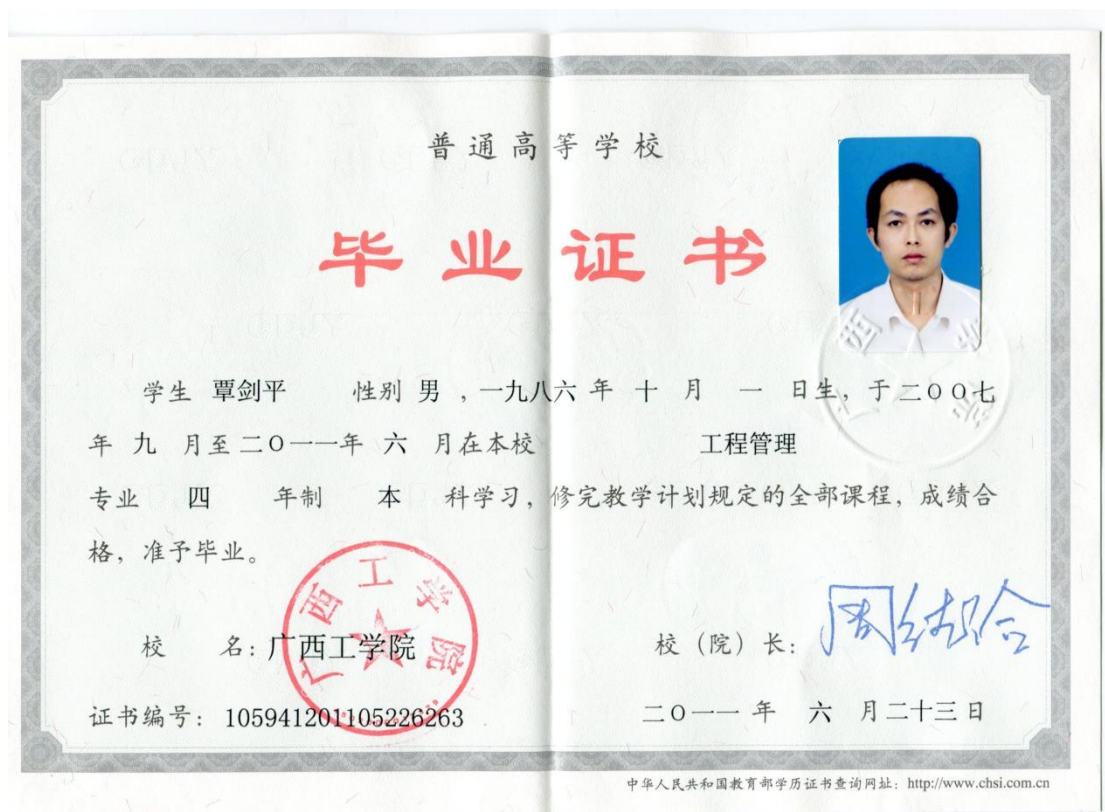 普通高等学校
毕业证书
学生 覃剑平 性别 男 ，一九八六 年 十 月 一 日生，于二００七
年 九 月至二０一一年 六 月在本校 工程管理
专业 四 年制 本 科学习，修完教学计划规定的全部课程，成绩合
格，准予毕业。
广西工学院
校 名：广西工学院
校（院）长：
证书编号：105941201105226263
二０一一 年 六 月二十三日
中华人民共和国教育部学历证书查询网址：http://www.chsi.com.cn